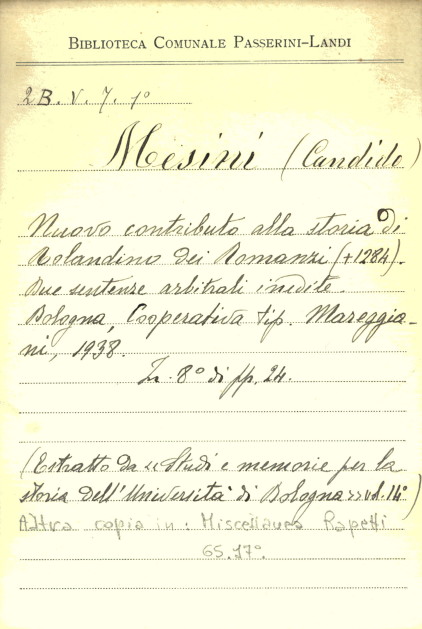 BIBLIOTECA COMUNALE PASSERINI-LANDI
2B. V. 7. 1°
Mesini (Candido)
Nuovo contributo alla storia di
Rolandino dei Romanzi (+1284).
Due sentenze arbitrali inedite.
Bologna, Cooperativa tip. Mareggia-
ni, 1938.
In 8° di pp. 24.
(Estratto da «Studi e memorie per la
storia dell'Università di Bologna» vol. 14°)
Altra copia in: Miscellanea Rapetti
65.17°.